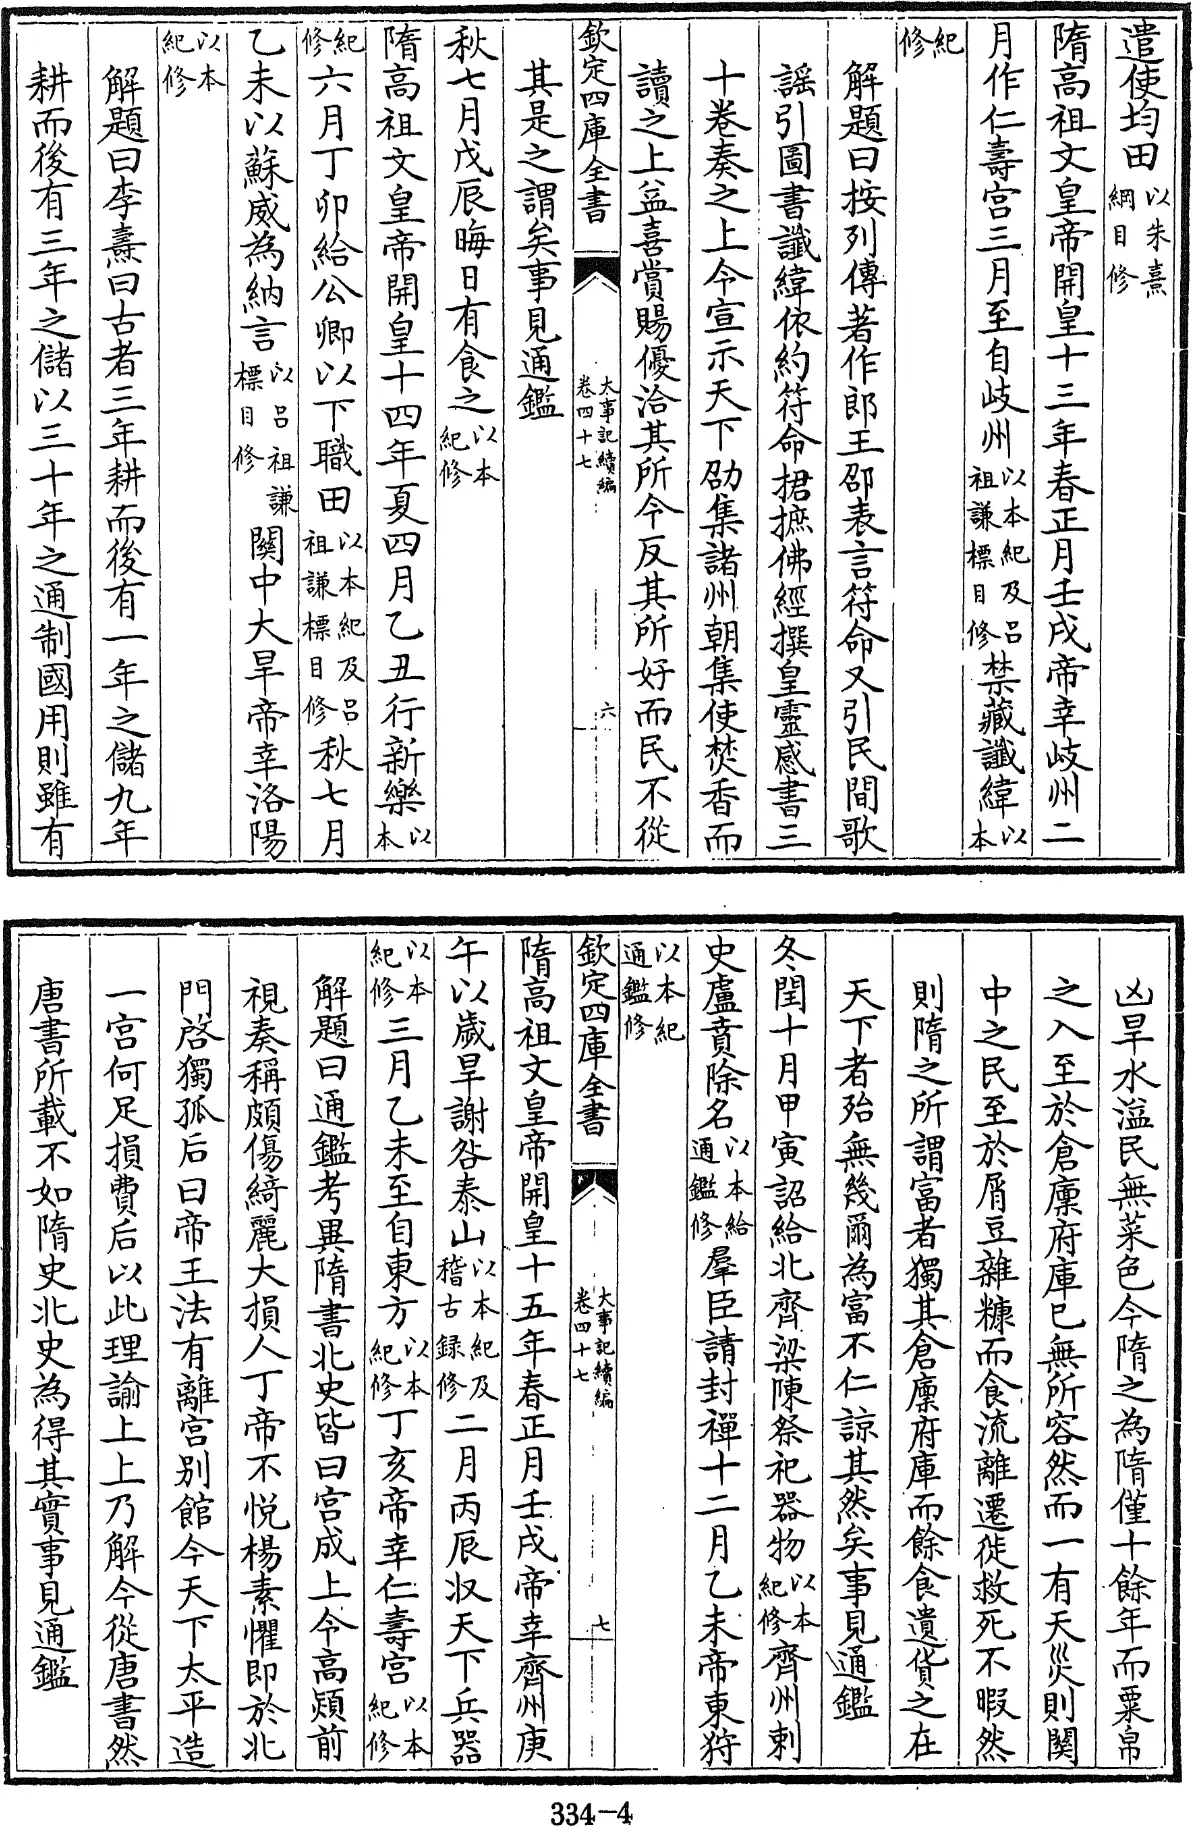 遣使均田以朱熹綱目修
隋高祖文皇帝開皇十三年春正月壬戌帝幸岐州二
月作仁壽宮三月至自岐州以本紀及呂祖謙標目修禁藏讖緯以本
紀修
解題曰按列傳著作郎王卲表言符命又引民間歌
謡引圖書讖緯依約符命捃摭佛經撰皇靈感書三
十卷奏之上令宣示天下劭集諸州朝集使焚香而
讀之上益喜賞賜優洽其所令反其所好而民不從
欽定四庫全書
大事記續編
卷四十七
六
其是之謂矣事見通鑑
秋七月戊辰晦日有食之以本紀修
隋高祖文皇帝開皇十四年夏四月乙丑行新樂以本
紀修六月丁卯給公卿以下職田以本紀及呂祖謙標目修秋七月
乙未以蘇威為納言以呂祖謙標目修關中大旱帝幸洛陽
以本紀修
解題曰李燾曰古者三年耕而後有一年之儲九年
耕而後有三年之儲以三十年之通制國用則雖有
凶旱水溢民無菜色今隋之為隋僅十餘年而粟帛
之入至於倉廩府庫已無所容然而一有天災則關
中之民至於屑豆雜糠而食流離遷徙救死不暇然
則隋之所謂富者獨其倉廩府庫而餘食遺貨之在
天下者殆無幾爾為富不仁諒其然矣事見通鑑
冬閏十月甲寅詔給北齊梁陳祭祀器物以本紀修齊州刺
史盧賁除名以本給通鑑修羣臣請封禪十二月乙未帝東狩
以本紀通鑑修
欽定四庫全書
大事記續編
卷四十七
七
隋高祖文皇帝開皇十五年春正月壬戌帝幸齊州庚
午以歲旱謝咎泰山以本紀及稽古録修二月丙辰収天下兵器
以本紀修三月乙未至自東方以本紀修丁亥帝幸仁壽宮以本紀修
解題曰通鑑考異隋書北史皆曰宮成上令高熲前
視奏稱頗傷綺麗大損人丁帝不悦楊素懼即於北
門啓獨孤后曰帝王法有離宮别館今天下太平造
一宮何足損費后以此理諭上上乃解今從唐書然
唐書所載不如隋史北史為得其實事見通鑑
334-4